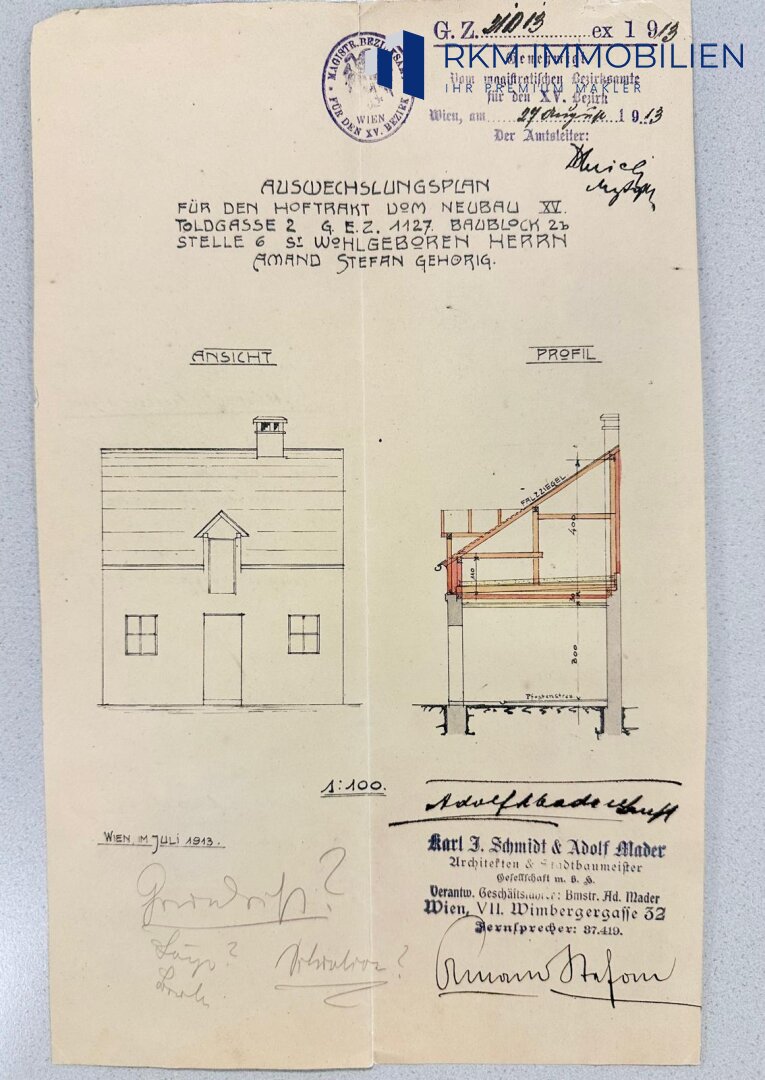 G. Z. 3110/13 ex 1913
RKM IMMOBILIEN
IHR PREMIUM MAKLER
MAGISTR. BEZIRKSAMT
FÜR DEN XV. BEZIRK
WIEN
Genehmigt
Vom magistratischen Bezirksamte
für den XV. Bezirk
Wien, am 27 August 1913
Der Amtsleiter:
AUSWECHSLUNGSPLAN
FÜR DEN HOFTRAKT VOM NEUBAU XV.
TOLDGASSE 2 G.E.Z. 1127. BAUBLOCK 2b
STELLE 6 Sr WOHLGEBOREN HERRN
AMAND STEFAN GEHÖRIG.
ANSICHT
PROFIL
FALZZIEGEL
400
110
300
1:100.
WIEN, IM JULI 1913.
Karl J. Schmidt & Adolf Mader
Architekten & Stadtbaumeister
Gesellschaft m. b. H.
Verantw. Geschäftsführer: Bmstr. Ad. Mader
Wien, VII. Wimbergergasse 32
Fernsprecher: 37.419.
Grundriss?
Situation?
Amand Stefan